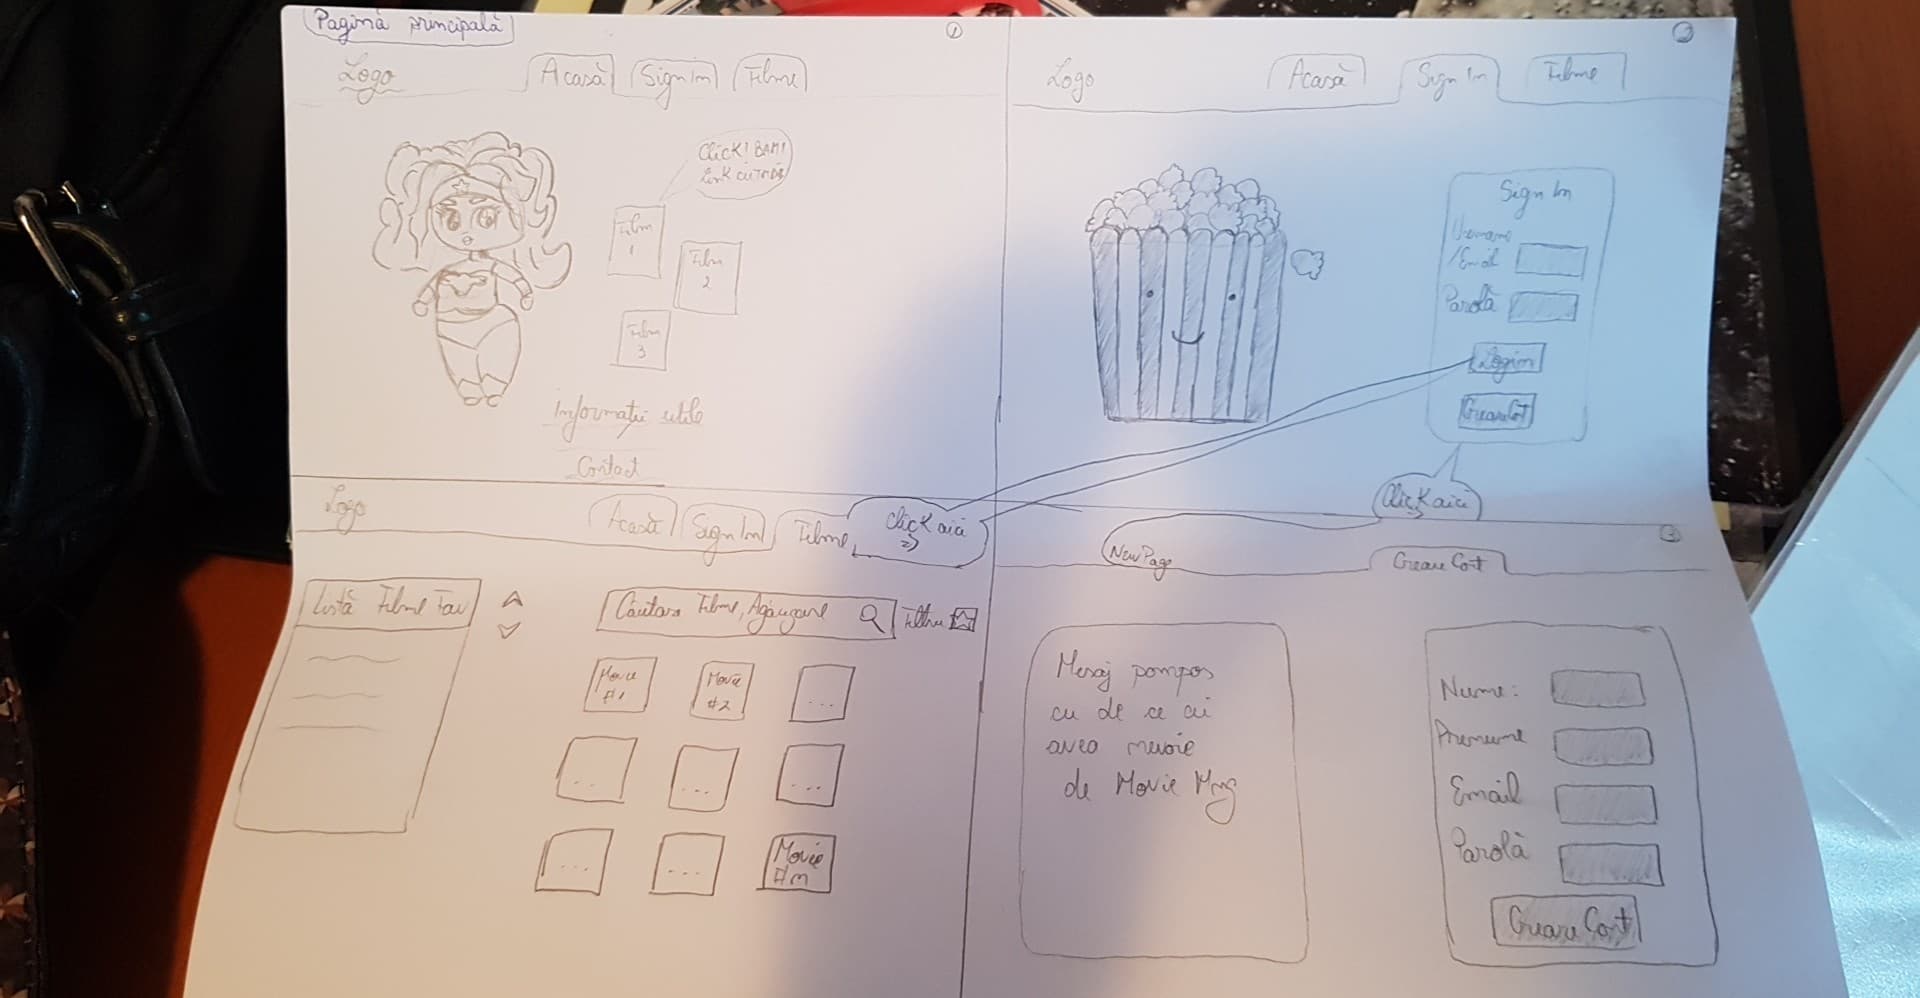 Pagină principală
1
Logo
Acasă
Sign In
Filme
Click! BAM!
Link
Film
1
Film
2
Film
3
Informații utile
Contact
2
Logo
Acasă
Sign In
Filme
Sign In
Username
/Email
Parolă
Login
Creare Cont
Click aici
Logo
Acasă
Sign In
Filme
Click aici
=>
Listă Filme Fav
Căutare Filme,
Filtru
Movie
#1
Movie
#2
...
...
...
...
...
...
Movie
#n
3
New Page
Creare Cont
Mesaj pompos
cu de ce ai
avea nevoie
de Movie Mng
Nume:
Prenume
Email
Parolă
Creare Cont